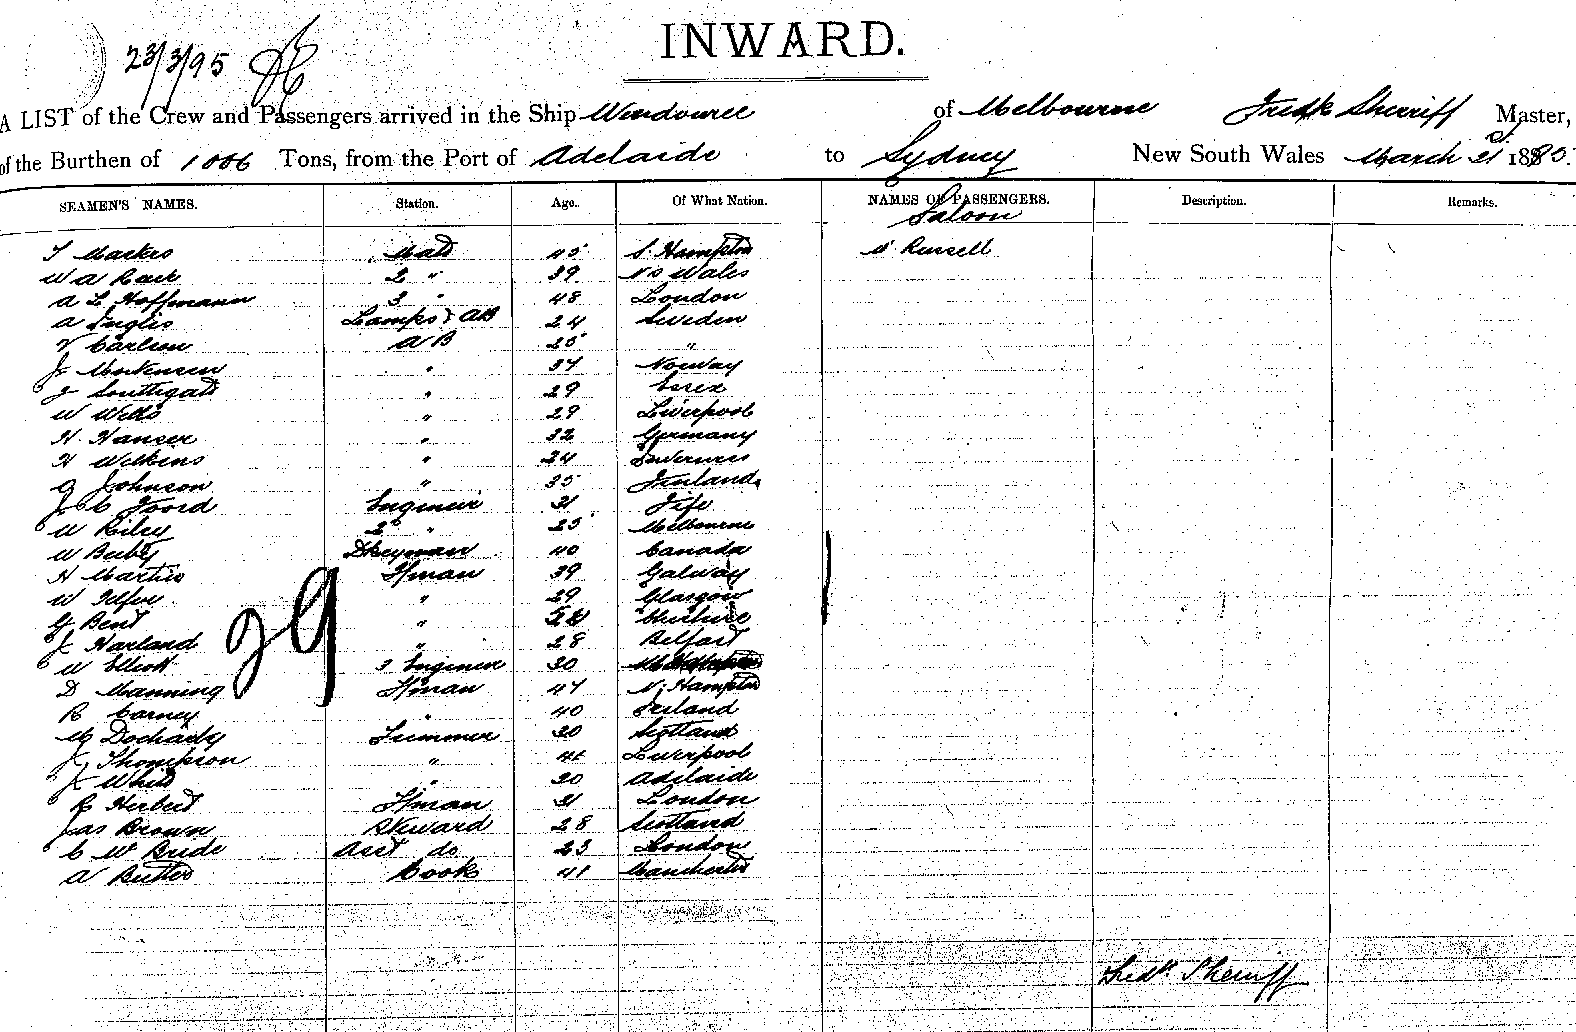 INWARD.
23/3/95
A LIST of the Crew and Passengers arrived in the Ship Wendouree of Melbourne Fredk Sherriff Master,
of the Burthen of 1006 Tons, from the Port of Adelaide to Sydney New South Wales March 21st 1895.
SEAMEN'S NAMES. Station. Age. Of What Nation. NAMES OF PASSENGERS. Description. Remarks.
Saloon
Mate 45 S. Hampton Russell
W A 2 " 39 N S Wales
A L Hoffmann 3 " 48 London
A Inglis Lamps & AB 24 Sweden
Carlson A B 25 "
J Mortensen " 37 Norway
J Southgate " 29 Essex
W Wells " 29 Liverpool
H. Hansen " 32 Germany
H Wilkins " 24 Inverness
G Johnson " 35 Finland
J C Foord Engineer 31 Fife
W Riley 2 " 25 Melbourne
W Dkeyman 40 Canada
H Martin Fman 39 Galway
W " 29 Glasgow
G Bent "
J Harland " 28 Belfast
W Elliott 3 Engineer 30
D Manning Fman 47 N. Hampton
R Carney " 40 Ireland
Trimmer 30 Scotland
J Thompson " Liverpool
J White " 20 Adelaide
R Herbert Fman 31 London
Jas Brown Steward 28 Scotland
C W Bride Asst do 23 London
A Butler Cook 41 Manchester
29
Fredk Sherriff